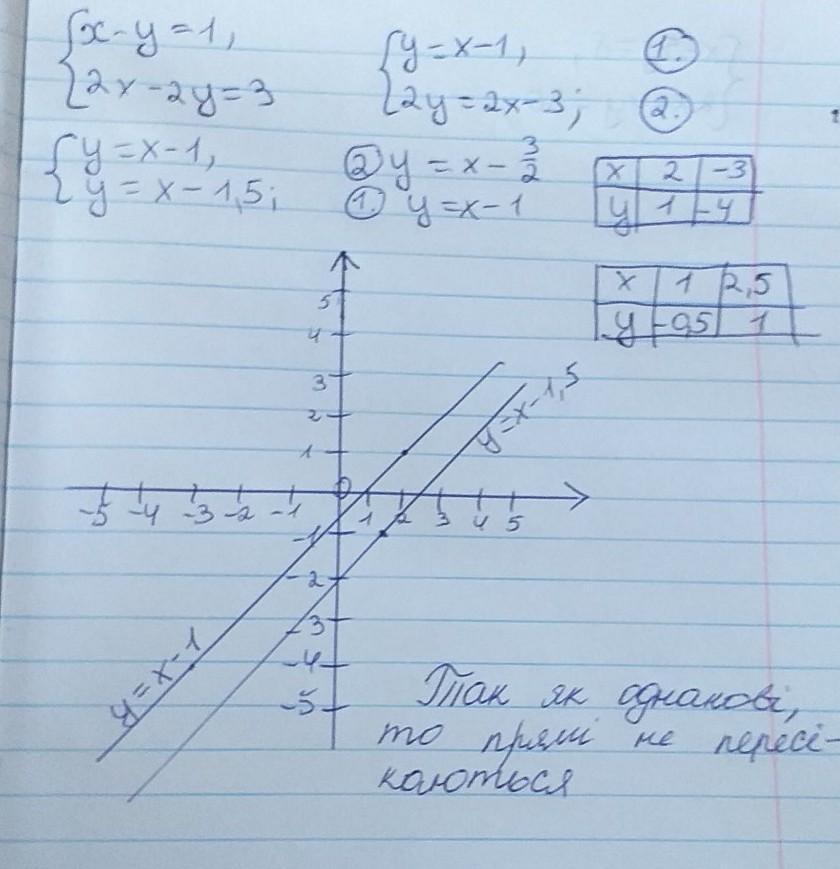 {x-y=1,
{2x-2y=3
{y=x-1, 1.
{2y=2x-3; 2.
{y=x-1,
{y=x-1,5;
2 y=x-3/2
1. y=x-1
x 2 -3
y 1 -4
x 1 2,5
y -0,5 1
5
4
3
2
1
-5 -4 -3 -2 -1 0 1 2 3 4 5
-1
-2
-3
-4
-5
y=x-1,5
y=x-1
Так як однакові,
то прямі не пересі-
каються